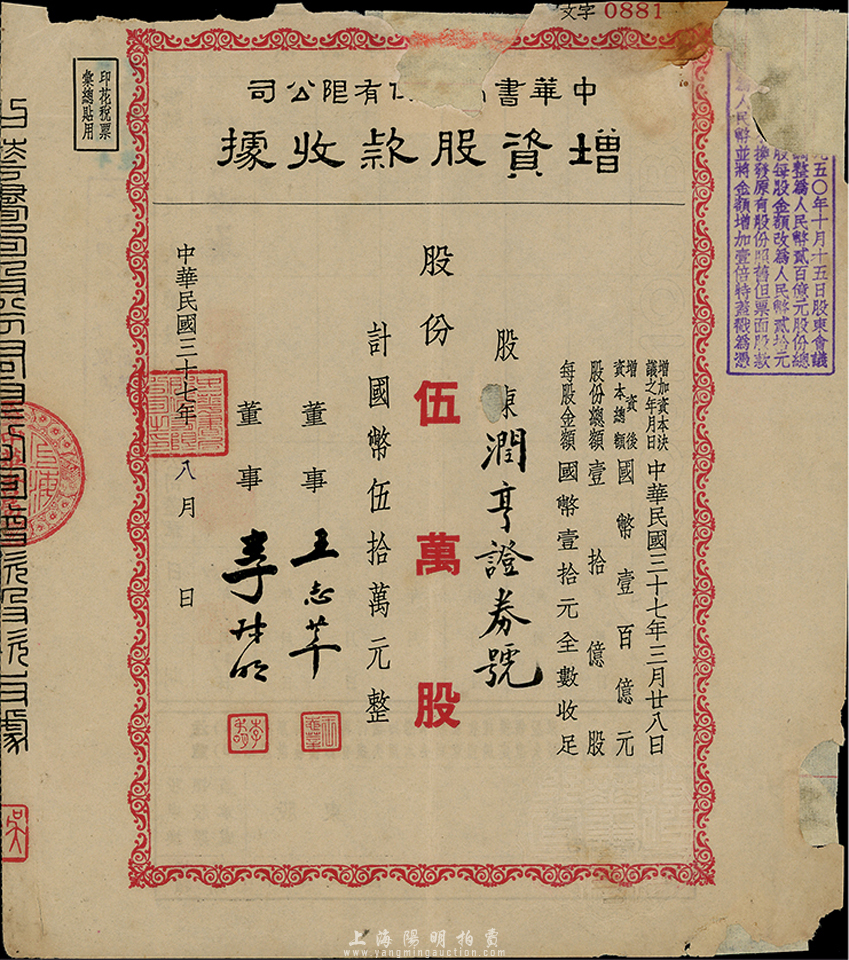 文字 0881
印花稅票
彙總貼用
中華書 份有限公司
增資股款收據
五〇年十月十五日股東會議
調整為人民幣貳百億元股份總
股每股金額改為人民幣貳拾元
換發原有股份照舊但票面股款
為人民幣並將金額增加壹倍特蓋戳為憑
增加資本決議之年月日 中華民國三十七年三月廿八日
增資後資本總額 國幣壹百億元
股份總額 壹拾億股
每股金額 國幣壹拾元全數收足
股東 潤亨證券號
股份 伍萬股
計國幣伍拾萬元整
董事 王志莘
董事 李
中華民國三十七年 八月 日
上海陽明拍賣
www.yangmingauction.com